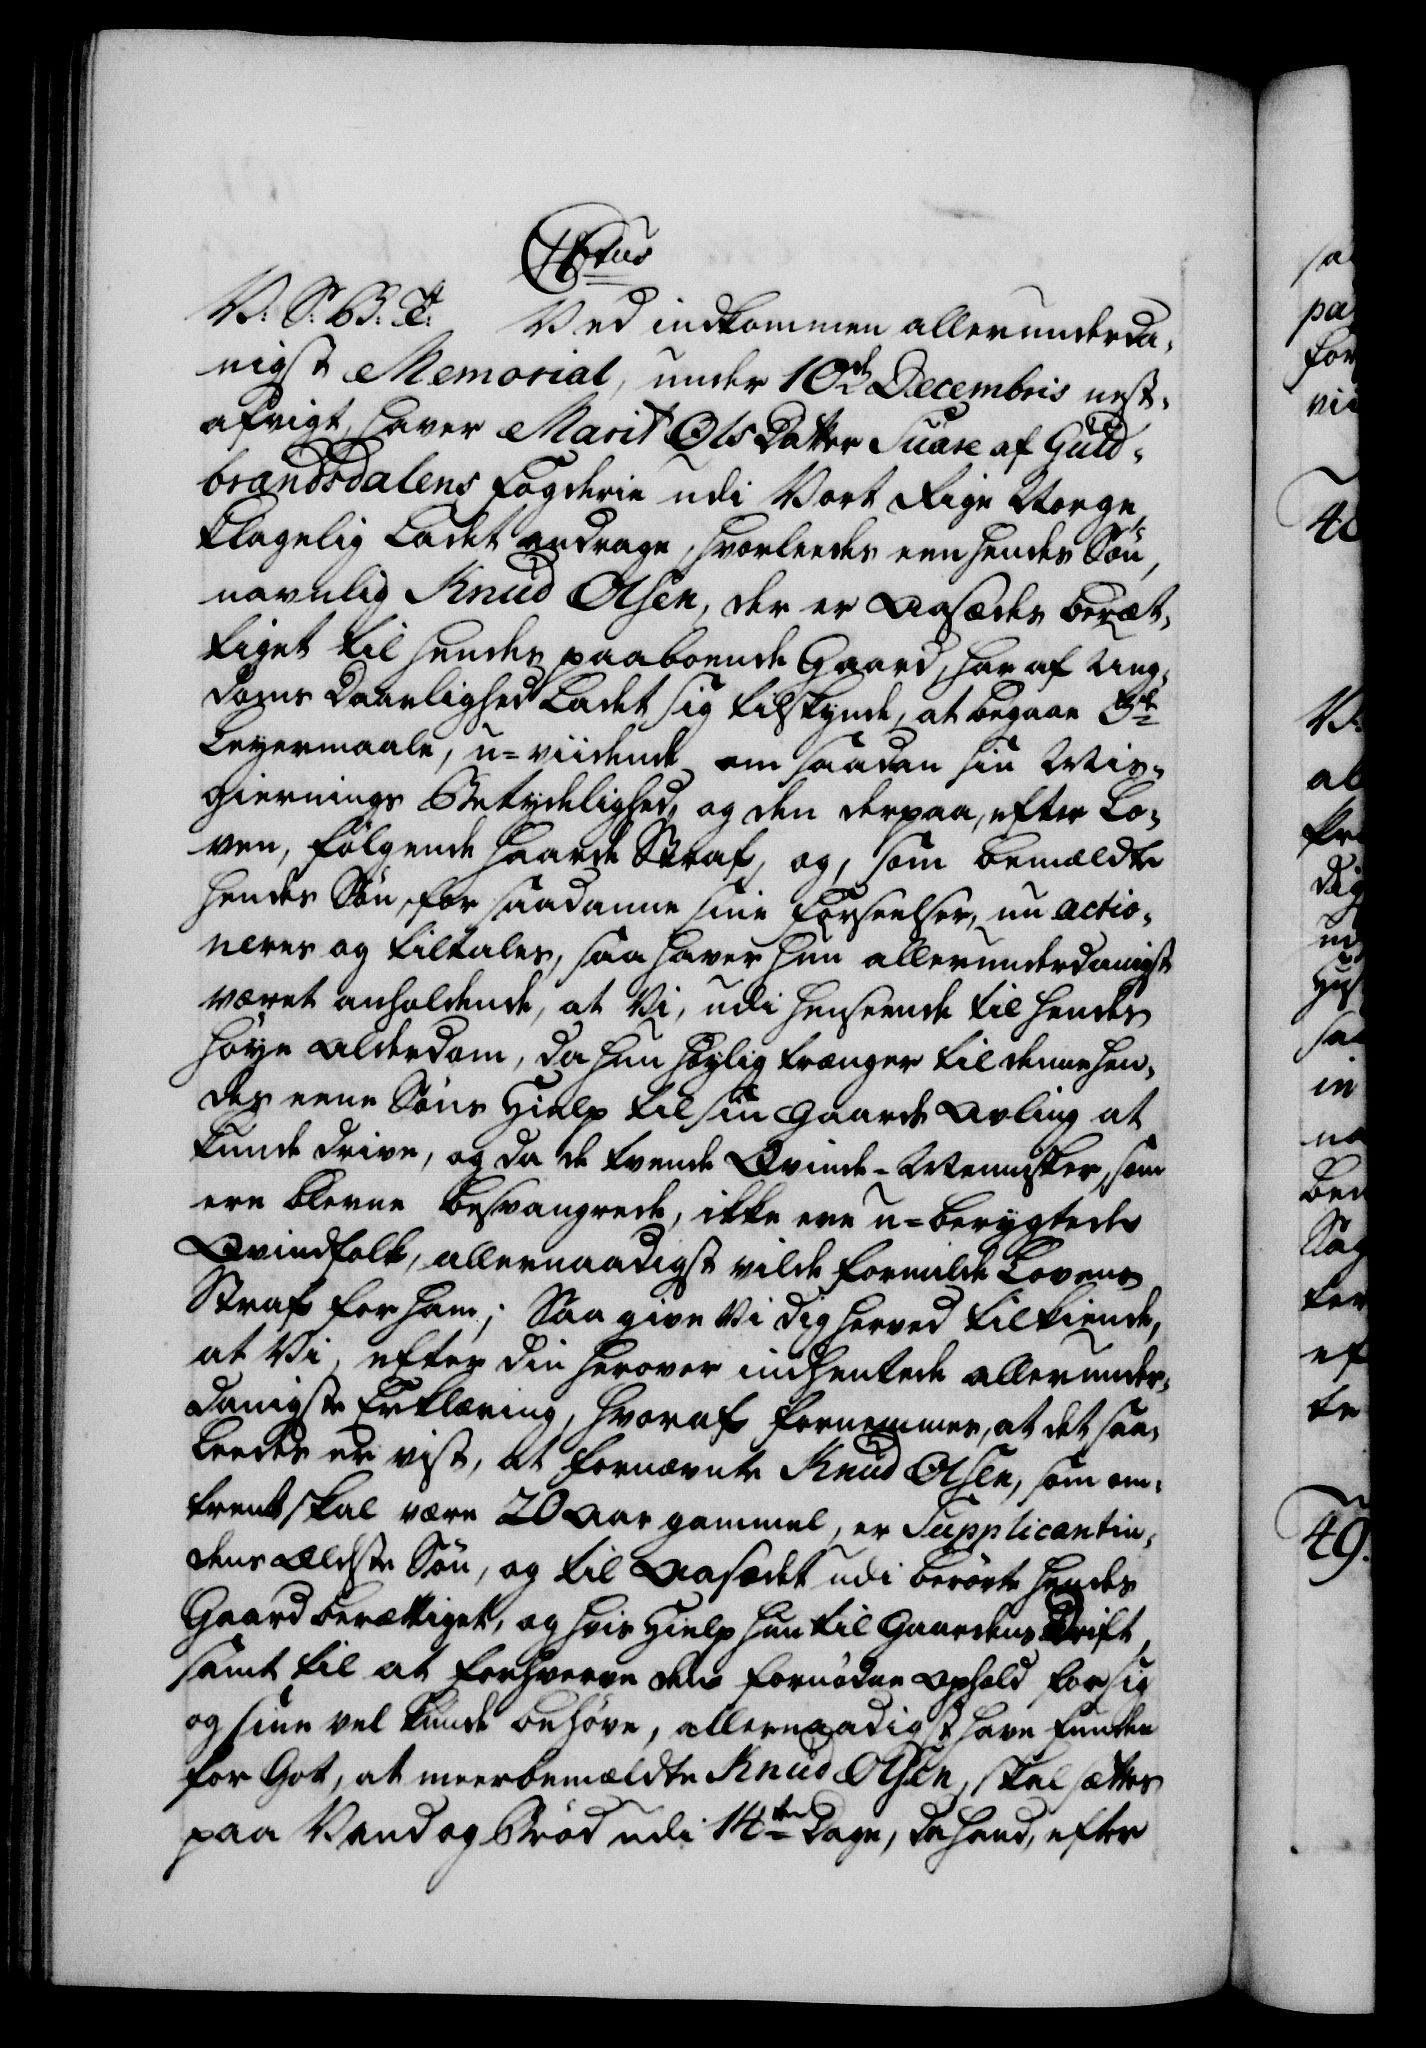 V: S: B: T: Ved indkommen allerunderda-
nigst Memorial, under 10de Decembris nest-
afvigt, haver Marit Ols Datter Suare af Guld-
brandsdalens Fogderie udi Vort Rige Norge,
klagelig ladet andrage, hvorleedes een hendes Søn,
navnlig Knud Olsen, der er Aasædes beræt-
tiget til hendes paaboende Gaard, har af Ung-
doms Daarlighed ladet sig tilskynde, at begaae 3de
Leyermaale, u=viidende om saadan sin Mis-
giernings Betydelighed, og den derpaa, efter Lo-
ven, følgende haarde Straf, og, som bemældte
hendes Søn, for saadanne sine Forseelser, nu actio-
neres og tiltales, saa haver hun allerunderdanigst
været anholdende, at Vi, udi henseende til hendes
høye Alderdom, da hun høylig trænger til denne hen-
des eene Søns Hielp til sin Gaards Avling at
kunde drive, og da de tvende Qvinde-Mennisker, som
ere blevne besvangrede, ikke ere u=berygtede
Qvindfolk, allernaadigst vilde formilde Lovens
Straf for ham; Saa give Vi dig herved tilkiende,
at Vi, efter din herover indhentede allerunder-
danigste Erklæring, hvoraf fornemmes, at det saa-
leedes er vist, at fornævnte Knud Olsen, som om-
trent skal være 20 Aar gammel, er Supplicantin-
dens ældste Søn, og til Aasædet udi berørte hendes
Gaard berættiget, og hvis Hielp hun til Gaardens Drift,
samt til at forhverve den fornødne Ophold for sig
og sine vel kunde behøve, allernaadigst have funden
for Got, at meerbemældte Knud Olsen, skal sættes
paa Vand og Brød udi 14ten Dage, da hand, efter